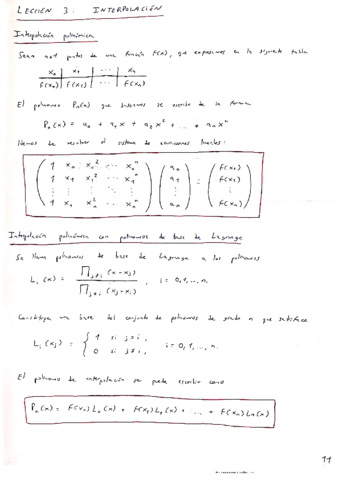 LECCIÓN 3: INTERPOLACIÓN
Interpolación polinómica
Sean n+1 puntos de una función F(x), que expresamos en la siguiente tabla
x₀ | x₁ | ... | xₙ
F(x₀) | F(x₁) | ... | F(xₙ)
El polinomio Pₙ(x) que buscamos se escribe de la forma
Pₙ(x) = a₀ + a₁x + a₂x² + ... + aₙxⁿ
Hemos de resolver el sistema de ecuaciones lineales:
( 1 x₀ x₀² ... x₀ⁿ ) ( a₀ ) ( F(x₀) )
( 1 x₁ x₁² ... x₁ⁿ ) ( a₁ ) = ( F(x₁) )
( ⋮ ⋮ ⋮ ⋮ ) ( ⋮ ) ( ⋮ )
( 1 xₙ xₙ² ... xₙⁿ ) ( aₙ ) ( F(xₙ) )
Interpolación polinómica con polinomios de base de Lagrange
Se llama polinomios de base de Lagrange a los polinomios
Lᵢ(x) = ∏j≠i (x-xⱼ) / ∏j≠i (xᵢ-xⱼ), i = 0,1,...,n.
una base del conjunto de polinomios de grado n que satisface
Lᵢ(xⱼ) = { 1 si j=i,
0 si j≠i, i=0,1,...,n.
El polinomio de interpolación se puede escribir como
Pₙ(x) = F(x₀)L₀(x) + F(x₁)L₁(x) + ... + F(xₙ)Lₙ(x)
11